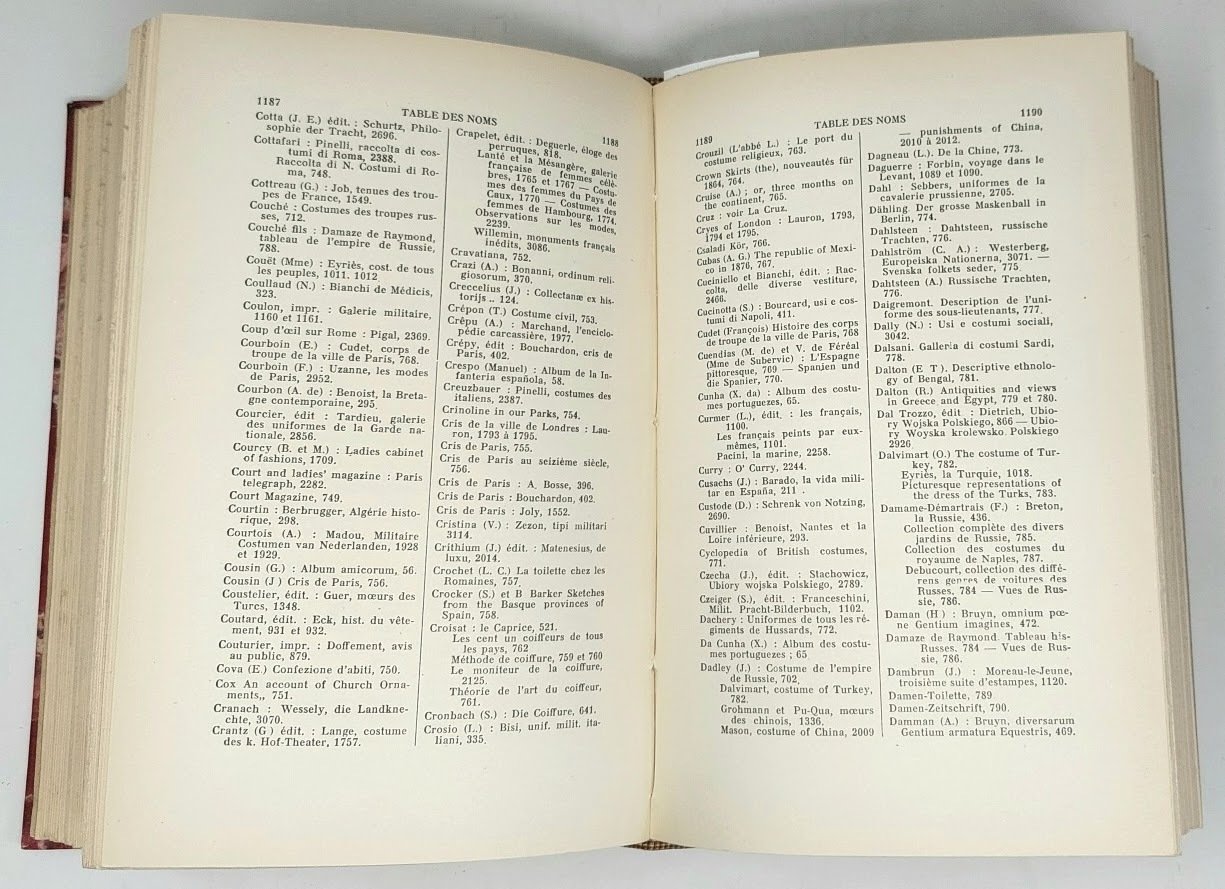 1187
TABLE DES NOMS
1188
Cotta (J. E.) édit. : Schurtz, Philo-
sophie der Tracht, 2696.
Cottafari : Pinelli, raccolta di cos-
tumi di Roma, 2388.
Raccolta di N. Costumi di Ro-
ma, 748.
Cottreau (G.) : Job, tenues des trou-
pes de France, 1549.
Couché : Costumes des troupes rus-
ses, 712.
Couché fils : Damaze de Raymond,
tableau de l'empire de Russie,
788.
Couët (Mme) : Eyriès, cost. de tous
les peuples, 1011. 1012
Coullaud (N.) : Bianchi de Médicis,
323.
Coulon, impr. : Galerie militaire,
1160 et 1161.
Coup d'œil sur Rome : Pigal, 2369.
Courboin (E.) : Cudet, corps de
troupe de la ville de Paris, 768.
Courboin (F.) : Uzanne, les modes
de Paris, 2952.
Courbon (A. de) : Benoist, la Breta-
gne contemporaine, 295.
Courcier, édit : Tardieu, galerie
des uniformes de la Garde na-
tionale, 2856.
Courcy (B. et M.) : Ladies cabinet
of fashions, 1709.
Court and ladies' magazine : Paris
telegraph, 2282.
Court Magazine, 749.
Courtin : Berbrugger, Algérie histo-
rique, 298.
Courtois (A.) : Madou, Militaire
Costumen van Nederlanden, 1928
et 1929.
Cousin (G.) : Album amicorum, 56.
Cousin (J ) Cris de Paris, 756.
Coustelier, édit : Guer, mœurs des
Turcs, 1348.
Coutard, édit. : Eck, hist. du vête-
ment, 931 et 932.
Couturier, impr. : Doffement, avis
au public, 879.
Cova (E.) Confezione d'abiti, 750.
Cox An account of Church Orna-
ments,, 751.
Cranach : Wessely, die Landkne-
chte, 3070.
Crantz (G ) édit. : Lange, costume
des k. Hof-Theater, 1757.
Crapelet, édit. : Deguerle, éloge des
perruques, 818.
Lanté et la Mésangère, galerie
française de femmes célè-
bres, 1765 et 1767 — Costu-
mes des femmes du Pays de
Caux, 1770 — Costumes des
femmes de Hambourg, 1774.
Observations sur les modes,
2239.
Willemin, monuments français
inédits, 3086.
Cravatiana, 752.
Crazi (A.) : Bonanni, ordinum reli-
giosorum, 370.
Creccelius (J.) : Collectanæ ex his-
torijs .. 124.
Crépon (T.) Costume civil, 753.
Crêpu (A.) : Marchand, l'enciclo-
pédie carcassière, 1977.
Crépy, édit : Bouchardon, cris de
Paris, 402.
Crespo (Manuel) : Album de la In-
fanteria española, 58.
Creuzbauer : Pinelli, costumes des
italiens, 2387.
Crinoline in our Parks, 754.
Cris de la ville de Londres : Lau-
ron, 1793 à 1795.
Cris de Paris, 755.
Cris de Paris au seizième siècle,
756.
Cris de Paris : A. Bosse, 396.
Cris de Paris : Bouchardon, 402.
Cris de Paris : Joly, 1552.
Cristina (V.) : Zezon, tipi militari
3114.
Crithium (J.) édit. : Matenesius, de
luxu, 2014.
Crochet (L. C.) La toilette chez les
Romaines, 757.
Crocker (S.) et B Barker Sketches
from the Basque provinces of
Spain, 758.
Croisat : le Caprice, 521.
Les cent un coiffeurs de tous
les pays, 762
Méthode de coiffure, 759 et 760
Le moniteur de la coiffure,
2125.
Théorie de l'art du coiffeur,
761.
Cronbach (S.) : Die Coiffure, 641.
Crosio (L.) : Bisi, unif. milit. ita-
liani, 335.
1189
TABLE DES NOMS
1190
Crouzil (L'abbé L.) : Le port du
costume religieux, 763.
Crown Skirts (the), nouveautés für
1864, 764.
Cruise (A.) ; or, three months on
the continent, 765.
Cruz : voir La Cruz.
Cryes of London : Lauron, 1793,
1794 et 1795.
Csaladi Kör, 766.
Cubas (A. G.) The republic of Mexi-
co in 1876, 767.
Cuciniello et Bianchi, édit. : Rac-
colta, delle diverse vestiture,
2466.
Cucinotta (S.) : Bourcard, usi e cos-
tumi di Napoli, 411.
Cudet (François) Histoire des corps
de troupe de la ville de Paris, 768
Cuendias (M. de) et V. de Féréal
(Mme de Subervic) : L'Espagne
pittoresque, 769 — Spanien und
die Spanier, 770.
Cunha (X. da) : Album des costu-
mes portuguezes, 65.
Curmer (L.), édit. : les français,
1100.
Les français peints par eux-
mêmes, 1101.
Pacini, la marine, 2258.
Curry : O' Curry, 2244.
Cusachs (J.) : Barado, la vida mili-
tar en España, 211 .
Custode (D.) : Schrenk von Notzing,
2690.
Cuvillier : Benoist, Nantes et la
Loire inférieure, 293.
Cyclopedia of British costumes,
771.
Czecha (J.), édit. : Stachowicz,
Ubiory wojska Polskiego, 2789.
Czeiger (S.), édit : Franceschini,
Milit. Pracht-Bilderbuch, 1102.
Dachery : Uniformes de tous les ré-
giments de Hussards, 772.
Da Cunha (X.) : Album des costu-
mes portuguezes ; 65
Dadley (J.) : Costume de l'empire
de Russie, 702.
Dalvimart, costume of Turkey,
782.
Grohmann et Pu-Qua, mœurs
des chinois, 1336.
Mason, costume of China, 2009
— punishments of China,
2010 à 2012.
Dagneau (L.). De la Chine, 773.
Daguerre : Forbin, voyage dans le
Levant, 1089 et 1090.
Dahl : Sebbers, uniformes de la
cavalerie prussienne, 2705.
Dähling. Der grosse Maskenball in
Berlin, 774.
Dahlsteen : Dahtsteen, russische
Trachten, 776.
Dahlström (C. A.) : Westerberg,
Europeiska Nationerna, 3071. —
Svenska folkets seder, 775
Dahtsteen (A.) Russische Trachten,
776.
Daigremont. Description de l'uni-
forme des sous-lieutenants, 777.
Dally (N.) : Usi e costumi sociali,
3042.
Dalsani. Galleria di costumi Sardi,
778.
Dalton (E T ). Descriptive ethnolo-
gy of Bengal, 781.
Dalton (R.) Antiquities and views
in Greece and Egypt, 779 et 780.
Dal Trozzo, édit : Dietrich, Ubio-
ry Wojska Polskiego, 866 — Ubio-
ry Woyska krolewsko Polskiego
2926
Dalvimart (O.) The costume of Tur-
key, 782.
Eyriès, la Turquie, 1018.
Picturesque representations of
the dress of the Turks, 783.
Damame-Démartrais (F.) : Breton,
la Russie, 436.
Collection complète des divers
jardins de Russie, 785.
Collection des costumes du
royaume de Naples, 787.
Debucourt, collection des diffé-
rens genres de voitures des
Russes. 784 — Vues de Rus-
sie, 786.
Daman (H ) : Bruyn, omnium pœ-
ne Gentium imagines, 472.
Damaze de Raymond. Tableau his-
Russes. 784 — Vues de Rus-
sie, 786.
Dambrun (J.) : Moreau-le-Jeune,
troisième suite d'estampes, 1120.
Damen-Toilette, 789
Damen-Zeitschrift, 790.
Damman (A.) : Bruyn, diversarum
Gentium armatura Equestris, 469.